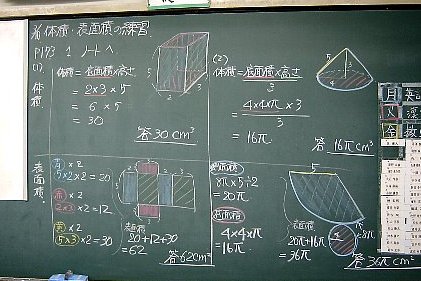 体積・表面積の練習
P173 1 ノートへ
(1)
体積
体積 = 底面積×高さ
= 2×3×5
= 6×5
= 30
答 30cm³
5
2
3
(2)
体積 = 底面積×高さ
3
= 4×4×π×3
3
= 16π
答 16πcm³
5
3
4
表面積
青 ×2
5×2×2=20
赤 ×2
2×3×2=12
黄 ×2
5×3×2=30
表面積
20+12+30
=62
答 62cm²
側面積
8π×5÷2
=20π
底面積
4×4×π
=16π
5
表面積
20π+16π
=36π
8π
答 36πcm²
月
火
金